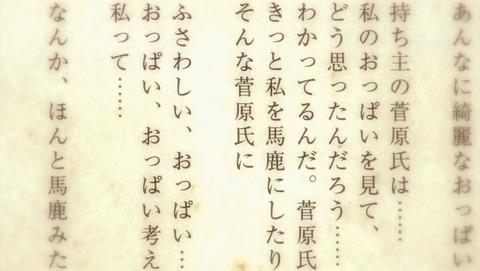 あんなに綺麗なおっぱい
持ち主の菅原氏は……
私のおっぱいを見て、
どう思ったんだろう……
わかってるんだ。菅原氏
きっと私を馬鹿にしたり
そんな菅原氏に
ふさわしい、おっぱい…
おっぱい、おっぱい考え
私って……
なんか、ほんと馬鹿みた